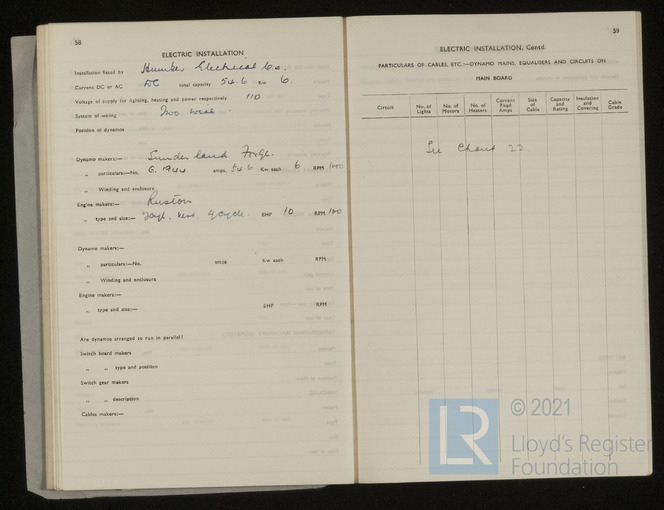 58
ELECTRIC INSTALLATION
Installation fitted by Humber Electrical Co.
Current DC or AC DC total capacity 54.6 Kw 6.
Voltage of supply for lighting, heating and power respectively 110
System of wiring Two wire
Position of dynamos
Dynamo makers:— Sunderland Forge.
„ particulars:—No. amps. 54.6 Kw each 6 RPM
„ Winding and enclosure
Engine makers:— Ruston
„ type and size:— 4 cycle. BHP 10 RPM
Dynamo makers:—
„ particulars:—No. amps Kw each RPM
„ Winding and enclosure
Engine makers:—
„ type and size:— BHP RPM
Are dynamos arranged to run in parallel?
Switch board makers
„ „ type and position
Switch gear makers
„ „ description
Cables makers:—
59
ELECTRIC INSTALLATION, Contd.
PARTICULARS OF CABLES, ETC.:—DYNAMO MAINS, EQUALISERS AND CIRCUITS ON
MAIN BOARD
Circuit No. of Lights No. of Motors No. of Heaters Current Reqd Amps Size of Cable Capacity and Rating Insulation and Covering Cable Grade
See Chart 22
LR
© 2021
Lloyd's Register
Foundation